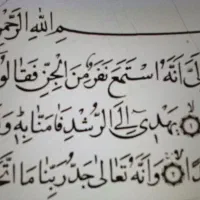 بِسْمِ اللهِ الرَّحْمٰنِ
اَنَّهُ اسْتَمَعَ نَفَرٌ مِّنَ الْجِنِّ فَقَالُوْ
يَّهْدِيْ اِلَى الرُّشْدِ فَاٰمَنَّا بِهٖ وَ
وَّاَنَّهٗ تَعَالٰى جَدُّ رَبِّنَا مَا